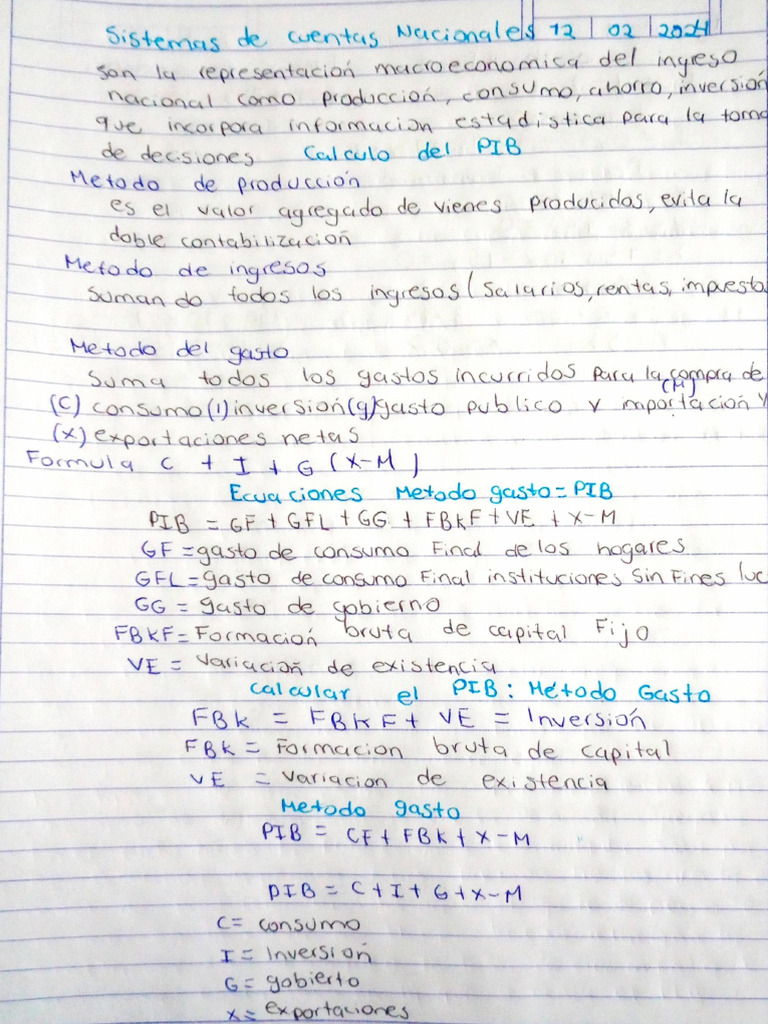 Sistemas de cuentas Nacionales 12 | 02 | 2024
son la representación macroeconomica del ingreso
nacional como producción, consumo, ahorro, inversión
que incorpora información estadistica para la toma
de decisiones Calculo del PIB
Metodo de producción
es el valor agregado de vienes producidos, evita la
doble contabilización
Metodo de ingresos
Suman do todos los ingresos (salarios, rentas, impuesto
Metodo del gasto
Suma todos los gastos incurridos para la compra de
(C) consumo (1) inversión (g) gasto publico y importación (M) y
(x) exportaciones netas
Formula C + I + G (X-M)
Ecuaciones Metodo gasto = PIB
PIB = GF + GFL + GG + FBKF + VE + X-M
GF = gasto de consumo Final de los hogares
GFL = gasto de consumo Final instituciones sin Fines luc
GG = gasto de gobierno
FBKF = Formación bruta de capital Fijo
VE = Variación de existencia
Calcular el PIB: Método Gasto
FBK = FBKF + VE = Inversión
FBK = Formacion bruta de capital
VE = variacion de existencia
Metodo gasto
PIB = CF + FBK + X-M
PIB = C + I + G + X-M
C = consumo
I = Inversión
G = gobierto
X = exportaciones